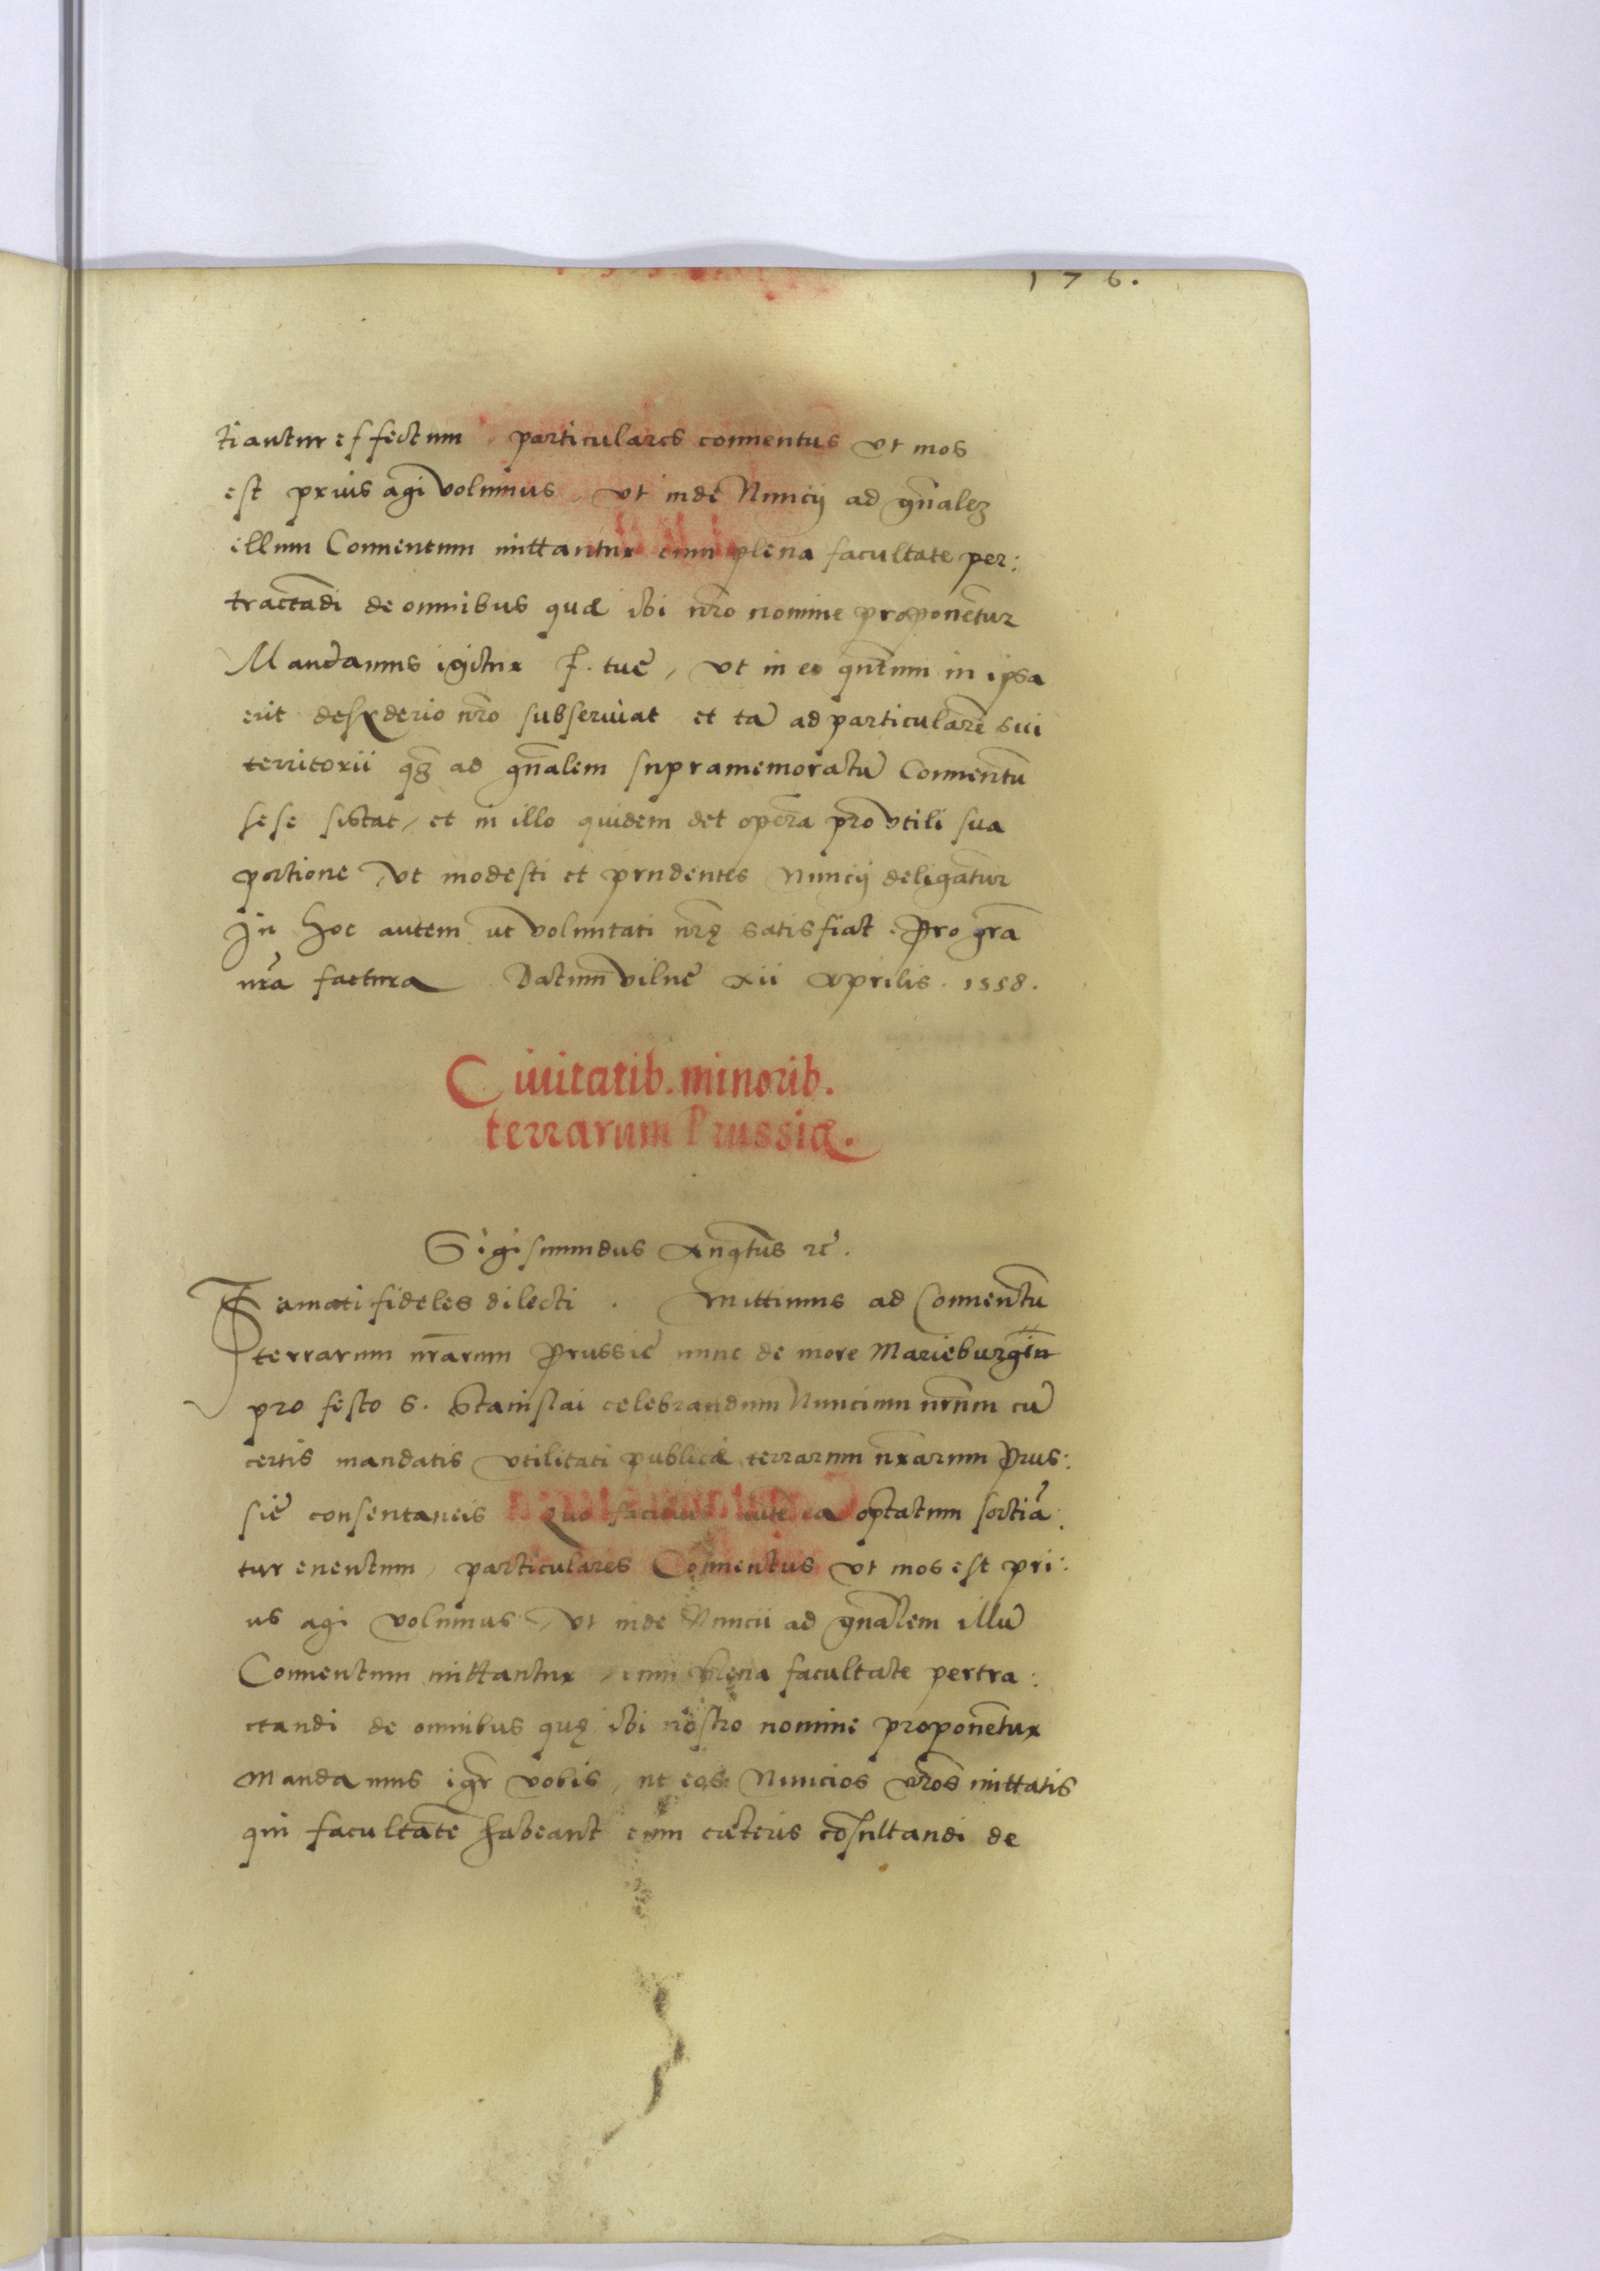 176.
tiantur effectum, particulares conuentus vt mos
est prius agi volumus, vt inde Nuncij ad gñalez
illum Conuentum mittantur cum plena facultate per:
tractādi de omnibus quæ ibi nr̄o nomine proponētur
Mandamus igitur F. tue, vt in eo quātum in ipsa
erit desyderio nr̄o subseruiat et tā ad particularē sui
territorii q̄ ad gñalem supramemoratū Conuentū
sese sistat, et in illo quidem det operā pro vtili sua
portione, vt modesti et prudentes Nuncij deligātur
In hoc autem vt voluntati nr̄ę satisfiat. Pro grā
nr̄a factura. Datum Vilnę xii Aprilis. 1558.
Ciuitatib. minorib.
terrarum Prussiæ.
Sigismundus Augtus rc̄.
Famati fideles dilecti. Mittimus ad Conuentū
terrarum nr̄arum Prussię nunc de more Marieburgin̄
pro festo S. Stanislai celebrandum Nuncium nr̄um cū
certis mandatis vtilitati publicæ terrarum nr̄arum Prus:
się consentaneis Quo facilius autē ea optatum sortiā:
tur euentum, particulares Conuentus vt mos est pri:
us agi volumus, vt inde Nuncii ad gñalem illū
Conuentum mittantur, cum plena facultate pertra:
ctandi de omnibus quę ibi nostro nomine proponētur
Mandamus igr̄ vobis, ut eos Nuncios vr̄os mittatis
qui facultatē habeant cum cæteris cōsultandi de